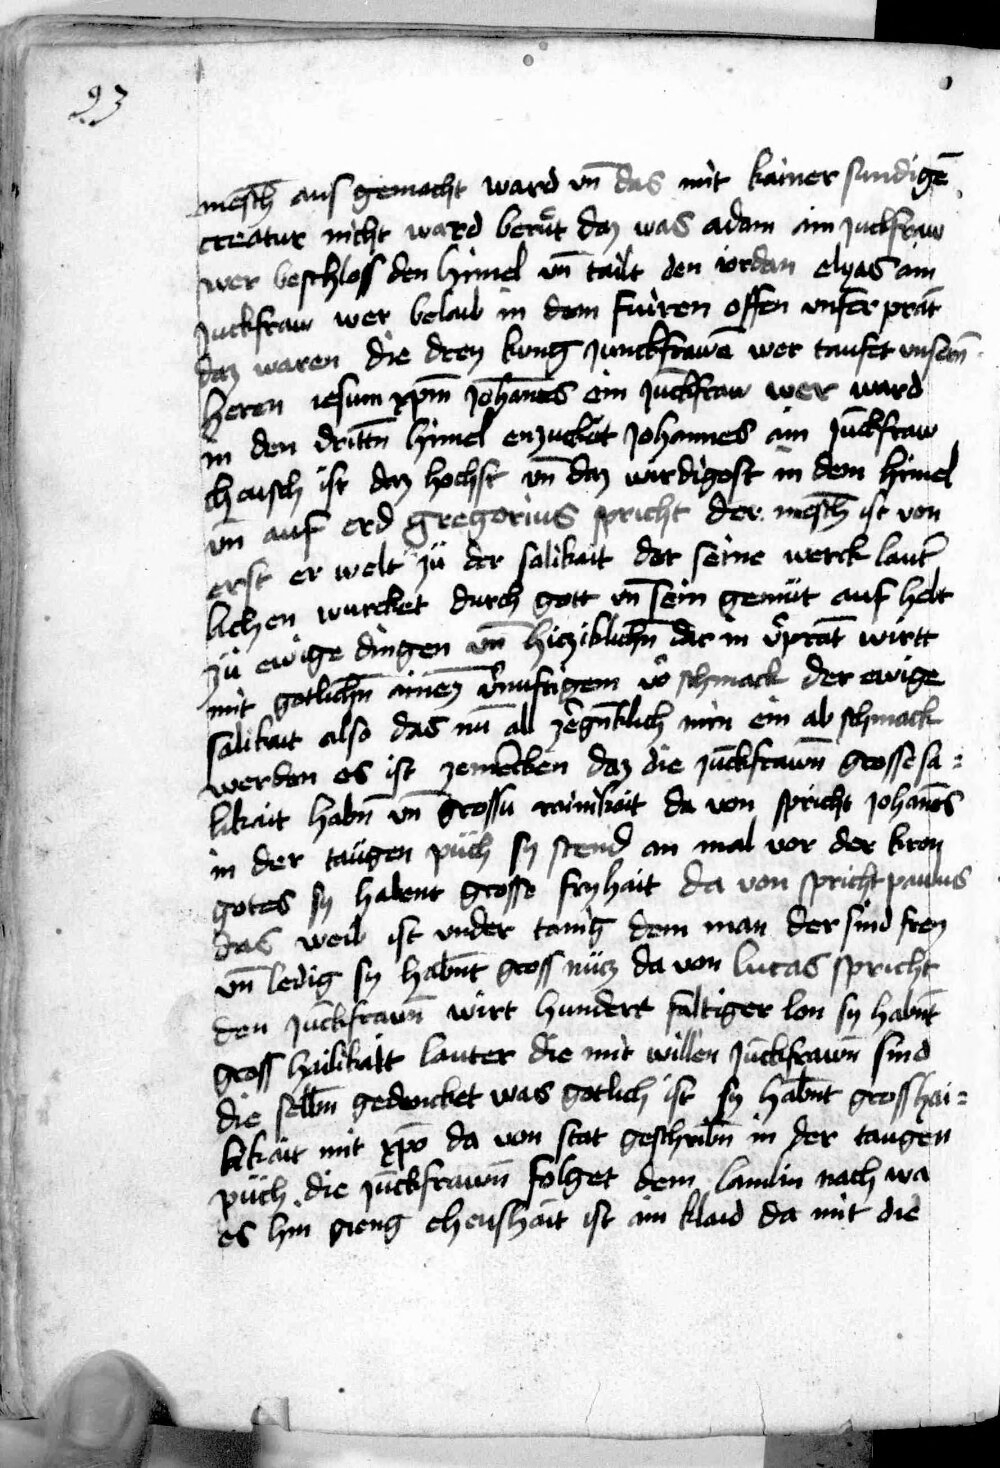 93
mesch aus gemacht ward vn̄ das mit kainer sundigē
creatur nicht ward berůt daz was adam ain juckfraw
wer beschloss den himel vn̄ tailt den iordan elyas ain
juckfraw wer belaib in dem fuiren offen vnser prāt
daz waren die drey kung junckfrawē wer taufet vnsern̄
heren iesum xp̄m johan̄es ein juckfraw wer ward
in den dritt̄n himel enzucket johannes ain jūckfraw
cheusch ist daz hochst vn̄ daz wirdigost in dem himel
vn̄ auf erd gregorius spricht der mesch̄ ist von
erst er welt zü der salikait der seine werck laut̄
lichen wurcket durch gott vn̄ sein gemüt auf helt
zü ewige dingen vn̄ hicziklich̄n dar in v̄prāt wirtt
mit gotlich̄n ainē v̄nuftigem vō schmack der ewige
salikait also das nū all zēgn̄klich mīn ein ab schmack
werdan es ist zemerken daz die jūckfrawn̄ grosse sa=
likait habn̄ vn̄ grossu rainikait da von spricht johan̄es
in der taügen püch sy stend an mal vor der kron
gotes sy habent grosse fryhait da von spricht paulus
das weib ist vnder tanig dem man der sind frey
vn̄ ledig sy habn̄t gross nücz da von lucas spricht
den jūckfrawn̄ wirt hundert faltiger lon sy habn̄t
gross hailikait lauter die mit willen jūckfrawn̄ sind
die selbn̄ gedencket was gotlich ist sy habn̄t gross hai=
likait mit xp̄o da von stat geschribn̄ in der taugen
püch die jūckfrawn̄ folget dem lamlin nach wa
es hin gieng cheushait ist ain klaid da mit die